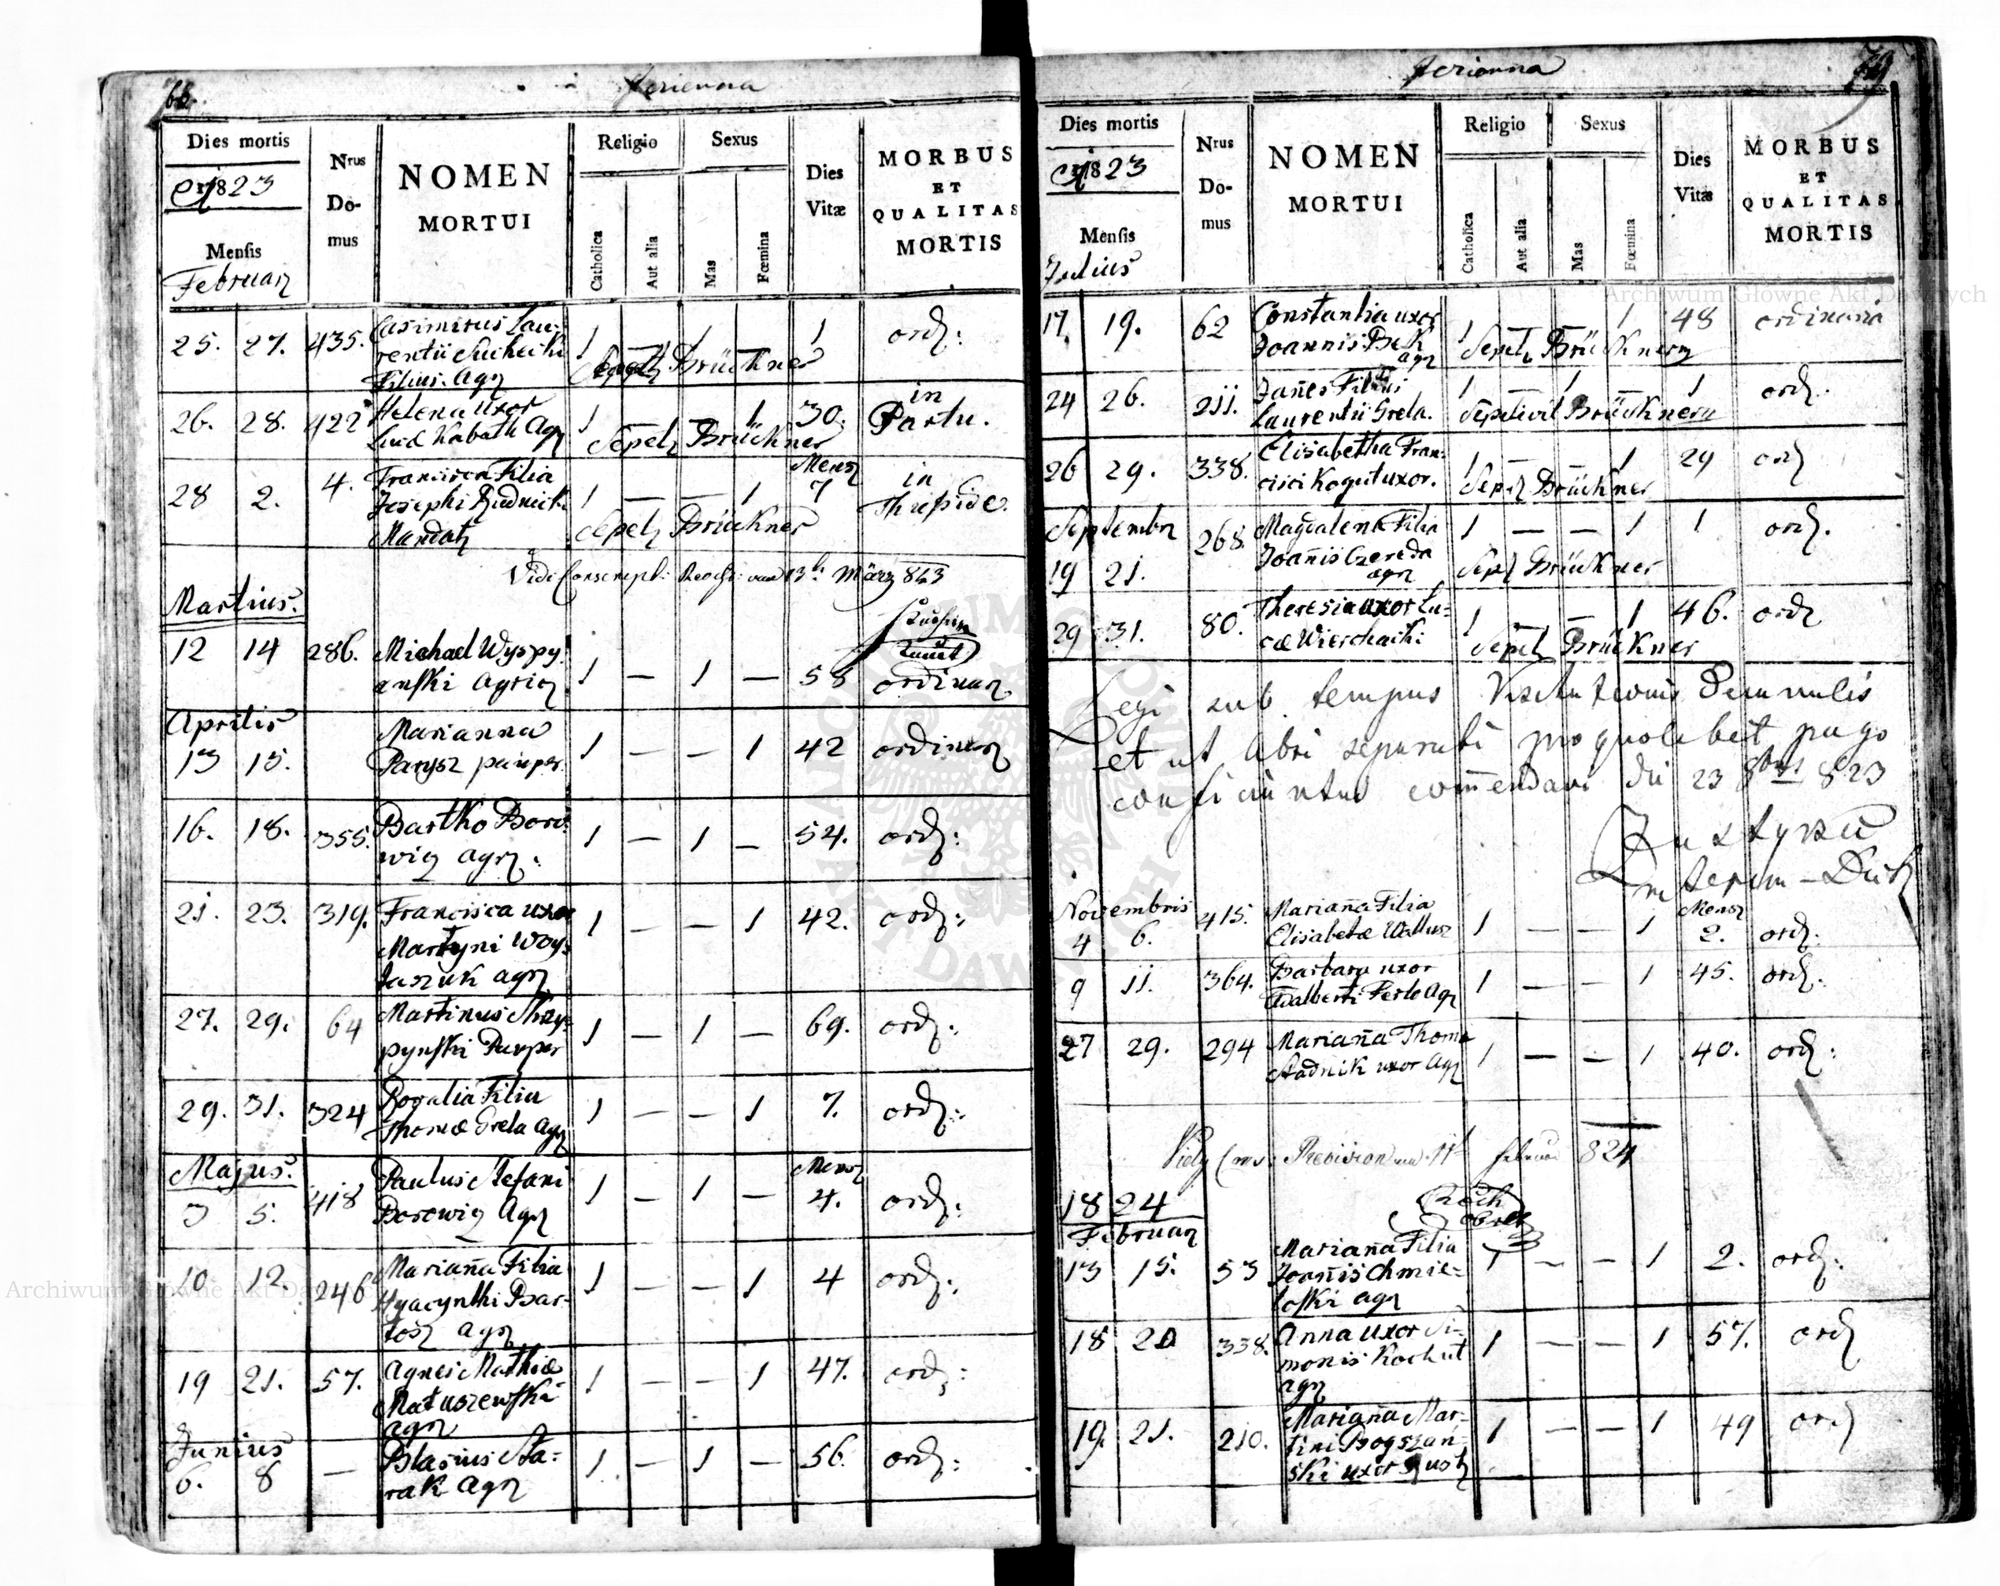 68.
Jerienna
Dies mortis
1823
Mensis
Februar
Nrus
Do-
mus
NOMEN
MORTUI
Religio
Catholica
Aut alia
Sexus
Mas
Fœmina
Dies
Vitæ
MORBUS
ET
QUALITAS
MORTIS
25. 27. 435. Casimirus Lau- 1 — 1 — 1 ord:
rentii
Filius. Agr
Sepelt Brückner
26. 28. 422 Helena uxor 1 — — 1 30. in
Lucæ Kabath Agr Partu.
Sepelt Brückner
28 2. 4. Francisca Filia 1 — — 1 Mens 7 in
Josephi Rudnicki
Mandat
Sepelt Brückner
Vidi Conscript: 13t März 823
Martius.
12 14 286. Michael Wyspy-
anski Agric 1 — 1 — 58 ordinar
Aprilis
13 15. Marianna
Parysz pauper. 1 — — 1 42 ordinar
16. 18. 355. Bartho Boro-
wiz agr. 1 — 1 — 54. ord:
21. 23. 319. Francisca uxor 1 — — 1 42. ord:
Martyni Woy-
taszuk agr
27. 29. 64 Martinus Skrzy-
pynski Pauper 1 — 1 — 69. ord:
29. 31. 324 Rosalia Filia
Thomæ Grela Agr 1 — — 1 7. ord:
Majus.
3 5. 418 Paulus Stefani
Borowiz Agr 1 — 1 — Mens 4. ord:
10. 12. 246 Mariana Filia
Hyacynthi Bar-
tosz agr 1 — — 1 4 ord:
19 21. 57. Agnes Mathiæ
Matuszewski
agr 1 — — 1 47. ord:
Junius
6. 8 — Blasius Sta-
rak Agr 1 — 1 — 56. ord:
Jerionna
Dies mortis
1823
Mensis
Julius
Nrus
Do-
mus
NOMEN
MORTUI
Religio
Catholica
Aut alia
Sexus
Mas
Fœmina
Dies
Vitæ
MORBUS
ET
QUALITAS
MORTIS
17. 19. 62 Constantia uxor 1 — — 1 48 ordinaria
Joannis Bek
agr
24 26. 211. Filius 1 — 1 — 1 ord:
Laurentii Grela.
Sepelivit Brückner
26 29. 338. Elisabetha Fran-
cisci Kogut uxor. 1 — — 1 29 ord
Sepel Brückner
Septembr
19 21. 268. Magdalena Filia 1 — — 1 1 ord.
Joanis Czereda
agr
Sepl Brückner
29 31. 80. Theresia uxor Lu-
cæ Wierchacki 1 — — 1 46. ord
Sepel Brückner
Legi sub tempus Visitationis Decanalis
et ut libri separati pro quolibet pago
conficiantur commendavi die 23 8bris 823
Novembris
4 6. 415. Mariana Filia
Elisabetæ 1 — — 1 Mens 2. ord:
9 11. 364. Barbara uxor
Adalberti Ferlo Agr 1 — — 1 45. ord:
27 29. 294 Mariana Thomæ
Stadnik uxor Agr 1 — — 1 40. ord:
Revision 11t februar 824
1824
Februar
13 15. 53 Mariana Filia
Joanis Chmie-
loski agr 1 — — 1 2. ord:
18 20 338. Anna uxor Si-
monis Kochut
agr 1 — — 1 57. ord
19. 21. 210. Mariana Mar-
tini Bogszan-
ski uxor 1 — — 1 49 ord
Archiwum Główne Akt Dawnych
Archiwum Główne Akt Dawnych
ARCHIWUM GŁÓWNE AKT DAWNYCH